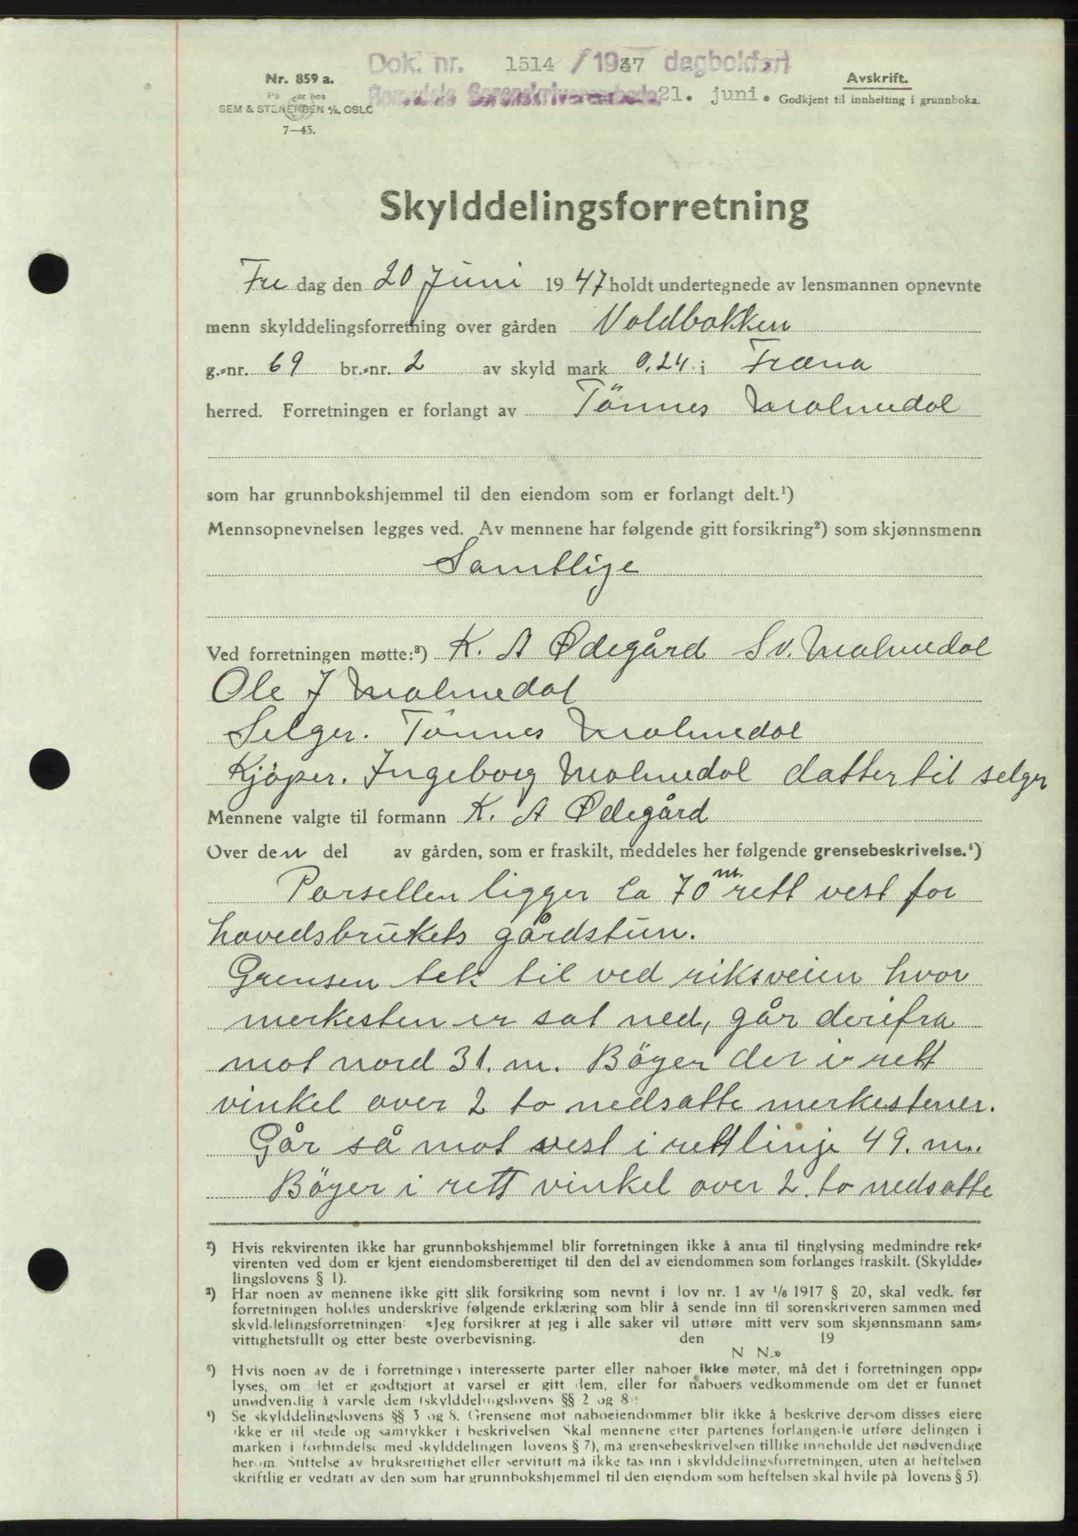 Dok. nr. 1514 / 1947 dagbokført
Nr. 859 a.
Avskrift.
Sorenskriverembede 21. juni.
Godkjent til innhefting i grunnboka.
SEM & STENERSEN A/S, OSLO
7—43.
Skylddelingsforretning
Fre dag den 20 Juni 1947 holdt undertegnede av lensmannen opnevnte
menn skylddelingsforretning over gården Voldbakken
g.-nr. 69 br.-nr. 2 av skyld mark 0,24 i Fræna
herred. Forretningen er forlangt av Tönnes Malmedal
som har grunnbokshjemmel til den eiendom som er forlangt delt.¹)
Mennsopnevnelsen legges ved. Av mennene har følgende gitt forsikring²) som skjønnsmenn
Samtlige
Ved forretningen møtte:³) K. A Ødegård Sv. Malmedal
Ole J Malmedal
Selger. Tönnes Malmedal
Kjöper. Ingeborg Malmedal datter til selger
Mennene valgte til formann K. A Ødegård
Over den del av gården, som er fraskilt, meddeles her følgende grensebeskrivelse.⁴)
Parsellen ligger ca 70 m rett vest for
hovedsbrukets gårdstun.
Grensen tek til ved riksveien hvor
merkesten er sat ned, går derifra
mot nord 31. m. Böyer der i rett
vinkel over 2 to nedsatte merkestener.
Går så mot vest i rett linje 49. m.
Böyer i rett vinkel over 2 to nedsatte
¹) Hvis rekvirenten ikke har grunnbokshjemmel blir forretningen ikke å anta til tinglysing medmindre rek-
virenten ved dom er kjent eiendomsberettiget til den del av eiendommen som forlanges fraskilt. (Skyldde-
lingslovens § 1).
²) Har noen av mennene ikke gitt slik forsikring som nevnt i lov nr. 1 av 1/6 1917 § 20, skal vedk. før
forretningen holdes underskrive følgende erklæring som blir å sende inn til sorenskriveren sammen med
skylddelingsforretningen: «Jeg forsikrer at jeg i alle saker vil utføre mitt verv som skjønnsmann sam-
vittighetsfullt og etter beste overbevisning. den 19
N N.»
³) Hvis noen av de i forretningen interesserte parter eller naboer ikke møter, må det i forretningen opp-
lyses, om det er godtgjort at varsel er gitt dem, eller for naboers vedkommende om det er funnet
unødvendig å varsle dem (skylddelingslovens §§ 2 og 8).
⁴) Se skylddelingslovens §§ 3 og 8. Grensene mot naboeiendommer blir ikke å beskrive dersom disses eiere
ikke er til stede og samtykker i beskrivelsen Skal mennene etter partenes forlangende utføre delingen i
marken i forbindelse med skylddelingen lovens § 7), må grensebeskrivelsen tillike inneholde det nødvendige
herom. Stiftelse av bruksrettighet eller servitutt må ikke tas inn i skylddelingsforretningen, uten at heftelsen
skriftlig er vedtatt av den som har grunnbokshjemmel til den eiendom som heftelsen skal hvile på lovens § 5).